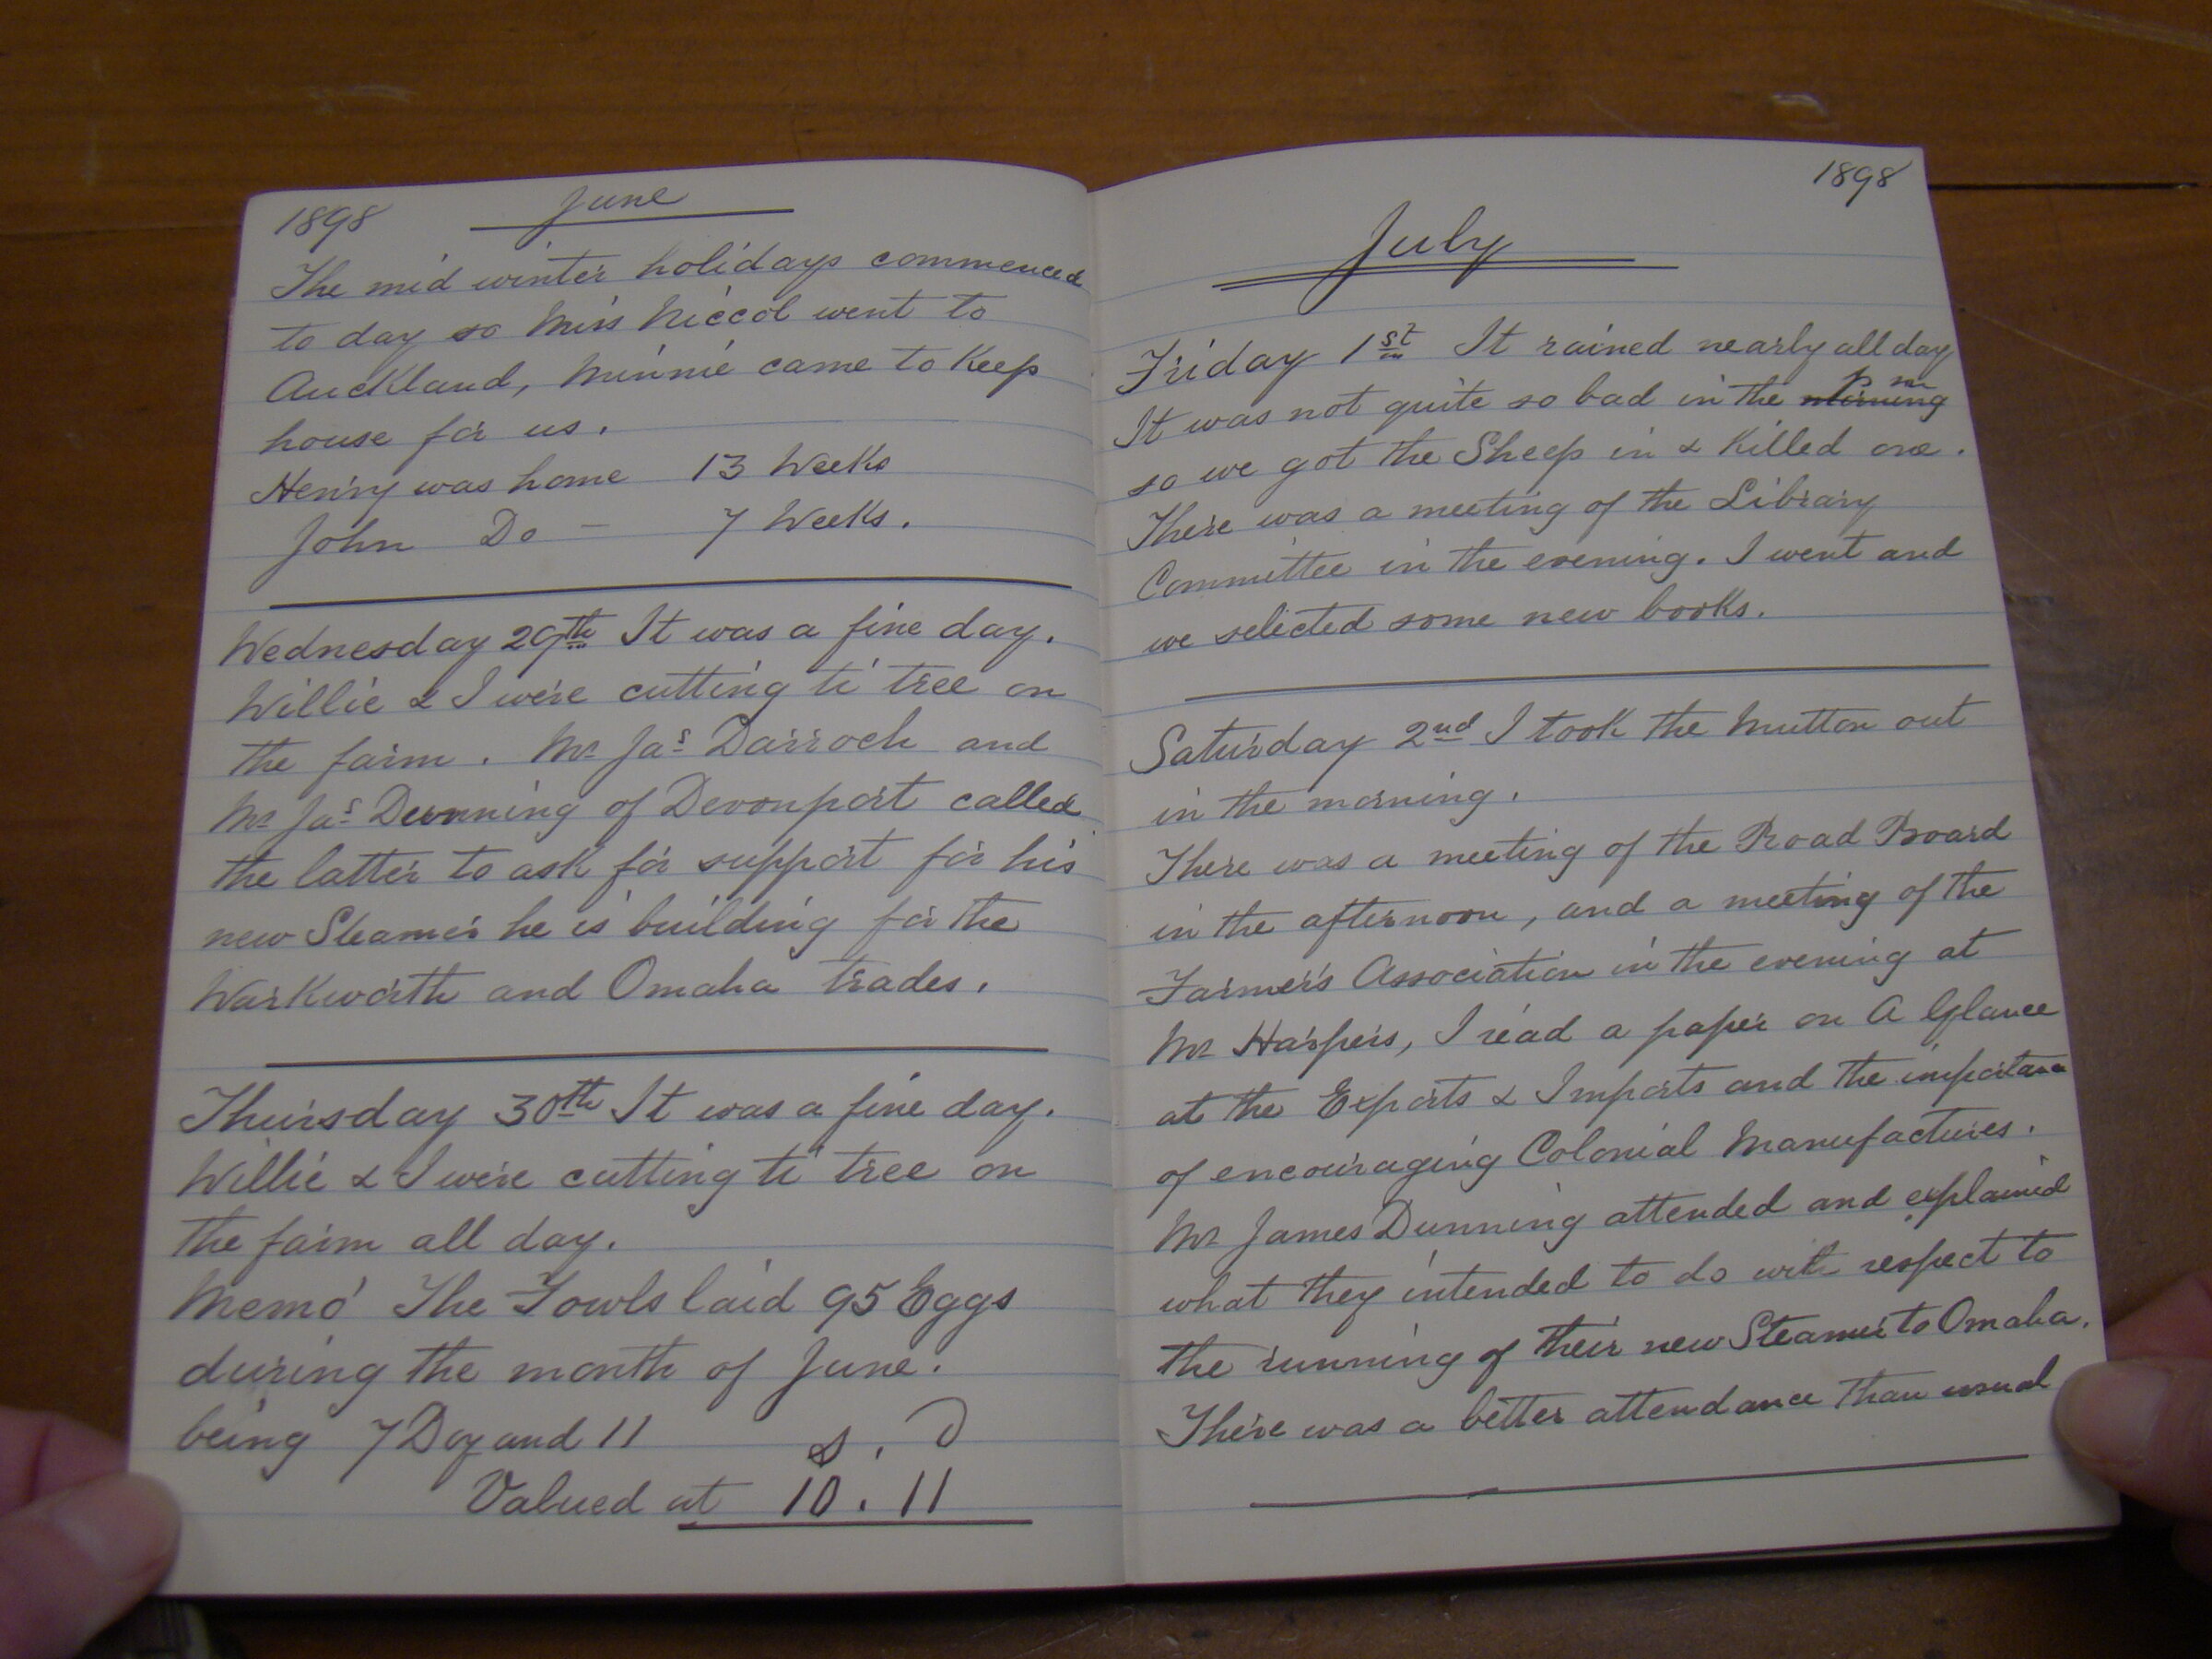 1898 June
The mid winter holidays commenced
to day so Miss Niccol went to
Auckland, Minnie came to Keep
house for us.
Henry was home 13 Weeks
John Do – 7 Weeks.
Wednesday 29th It was a fine day.
Willie & I were cutting ti tree on
the farm. Mr Jas Darroch and
Mr Jas Dunning of Devonport called
the latter to ask for support for his
new Steamer he is building for the
Warkworth and Omaha trades.
Thursday 30th It was a fine day.
Willie & I were cutting ti tree on
the farm all day.
Memo The Fowls laid 95 Eggs
during the month of June.
being 7 Doz and 11
s. d
Valued at 10. 11
1898
July
Friday 1st It rained nearly all day
It was not quite so bad in the morning p m
so we got the Sheep in & Killed one.
There was a meeting of the Library
Committee in the evening. I went and
we selected some new books.
Saturday 2nd I took the Mutton out
in the morning.
There was a meeting of the Road Board
in the afternoon, and a meeting of the
Farmer's Association in the evening at
Mr Harpers, I read a paper on A Glance
at the Exports & Imports and the importance
of encouraging Colonial Manufactures.
Mr James Dunning attended and explained
what they intended to do with respect to
the running of their new Steamer to Omaha.
There was a better attendance than usual